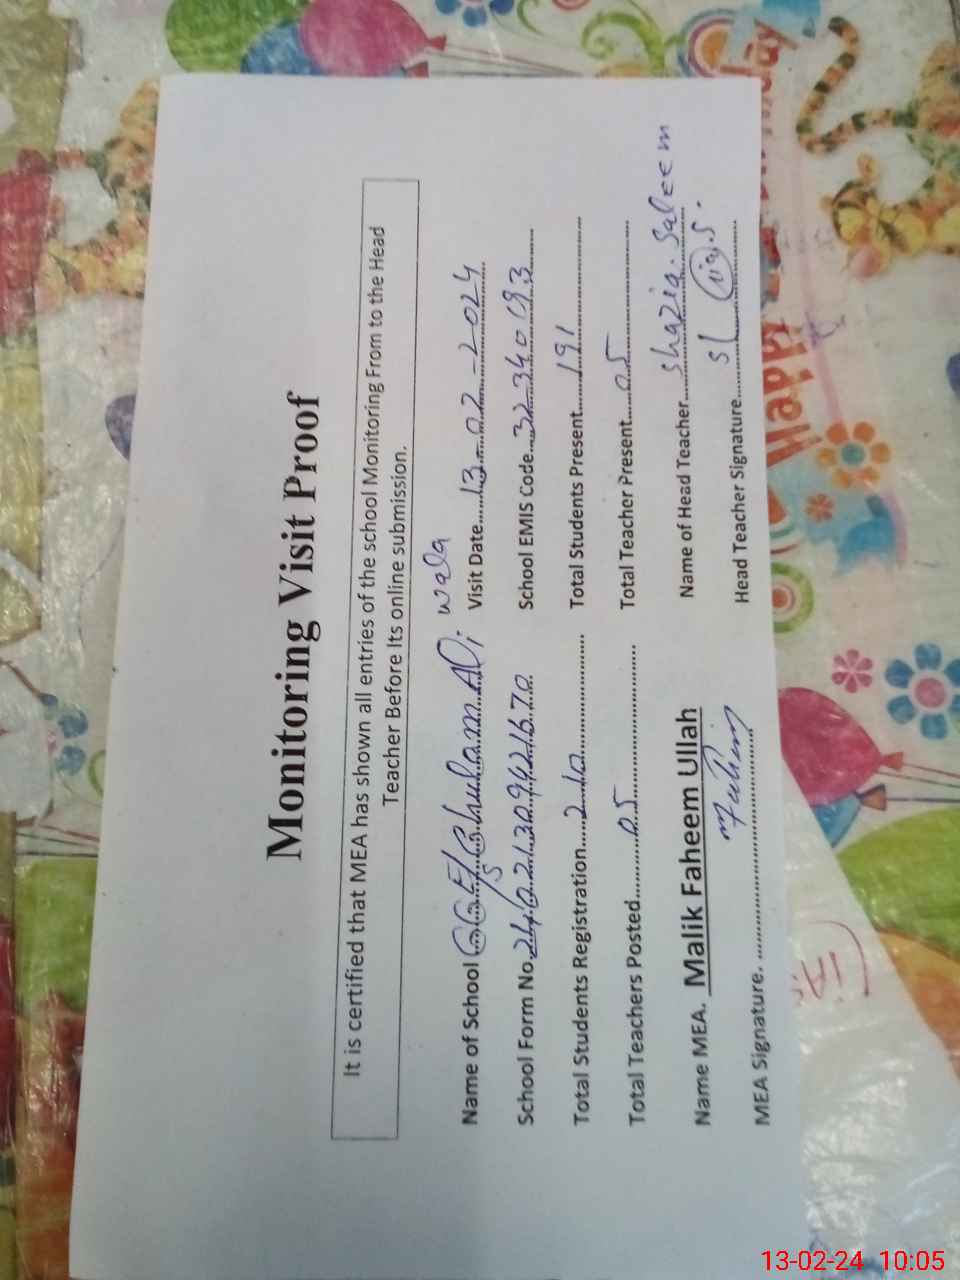 Monitoring Visit Proof
It is certified that MEA has shown all entries of the school Monitoring From to the Head
Teacher Before Its online submission.
Name of School GGES Ghulam Ali wala
Visit Date......13-02-2024
School Form No.
School EMIS Code....32340193
Total Students Registration.....210
Total Students Present......191
Total Teachers Posted..........05
Total Teacher Present.....05
Name MEA. Malik Faheem Ullah
Name of Head Teacher...Shazia. Saleem
MEA Signature. Fahim
Head Teacher Signature.....
13-02-24 10:05